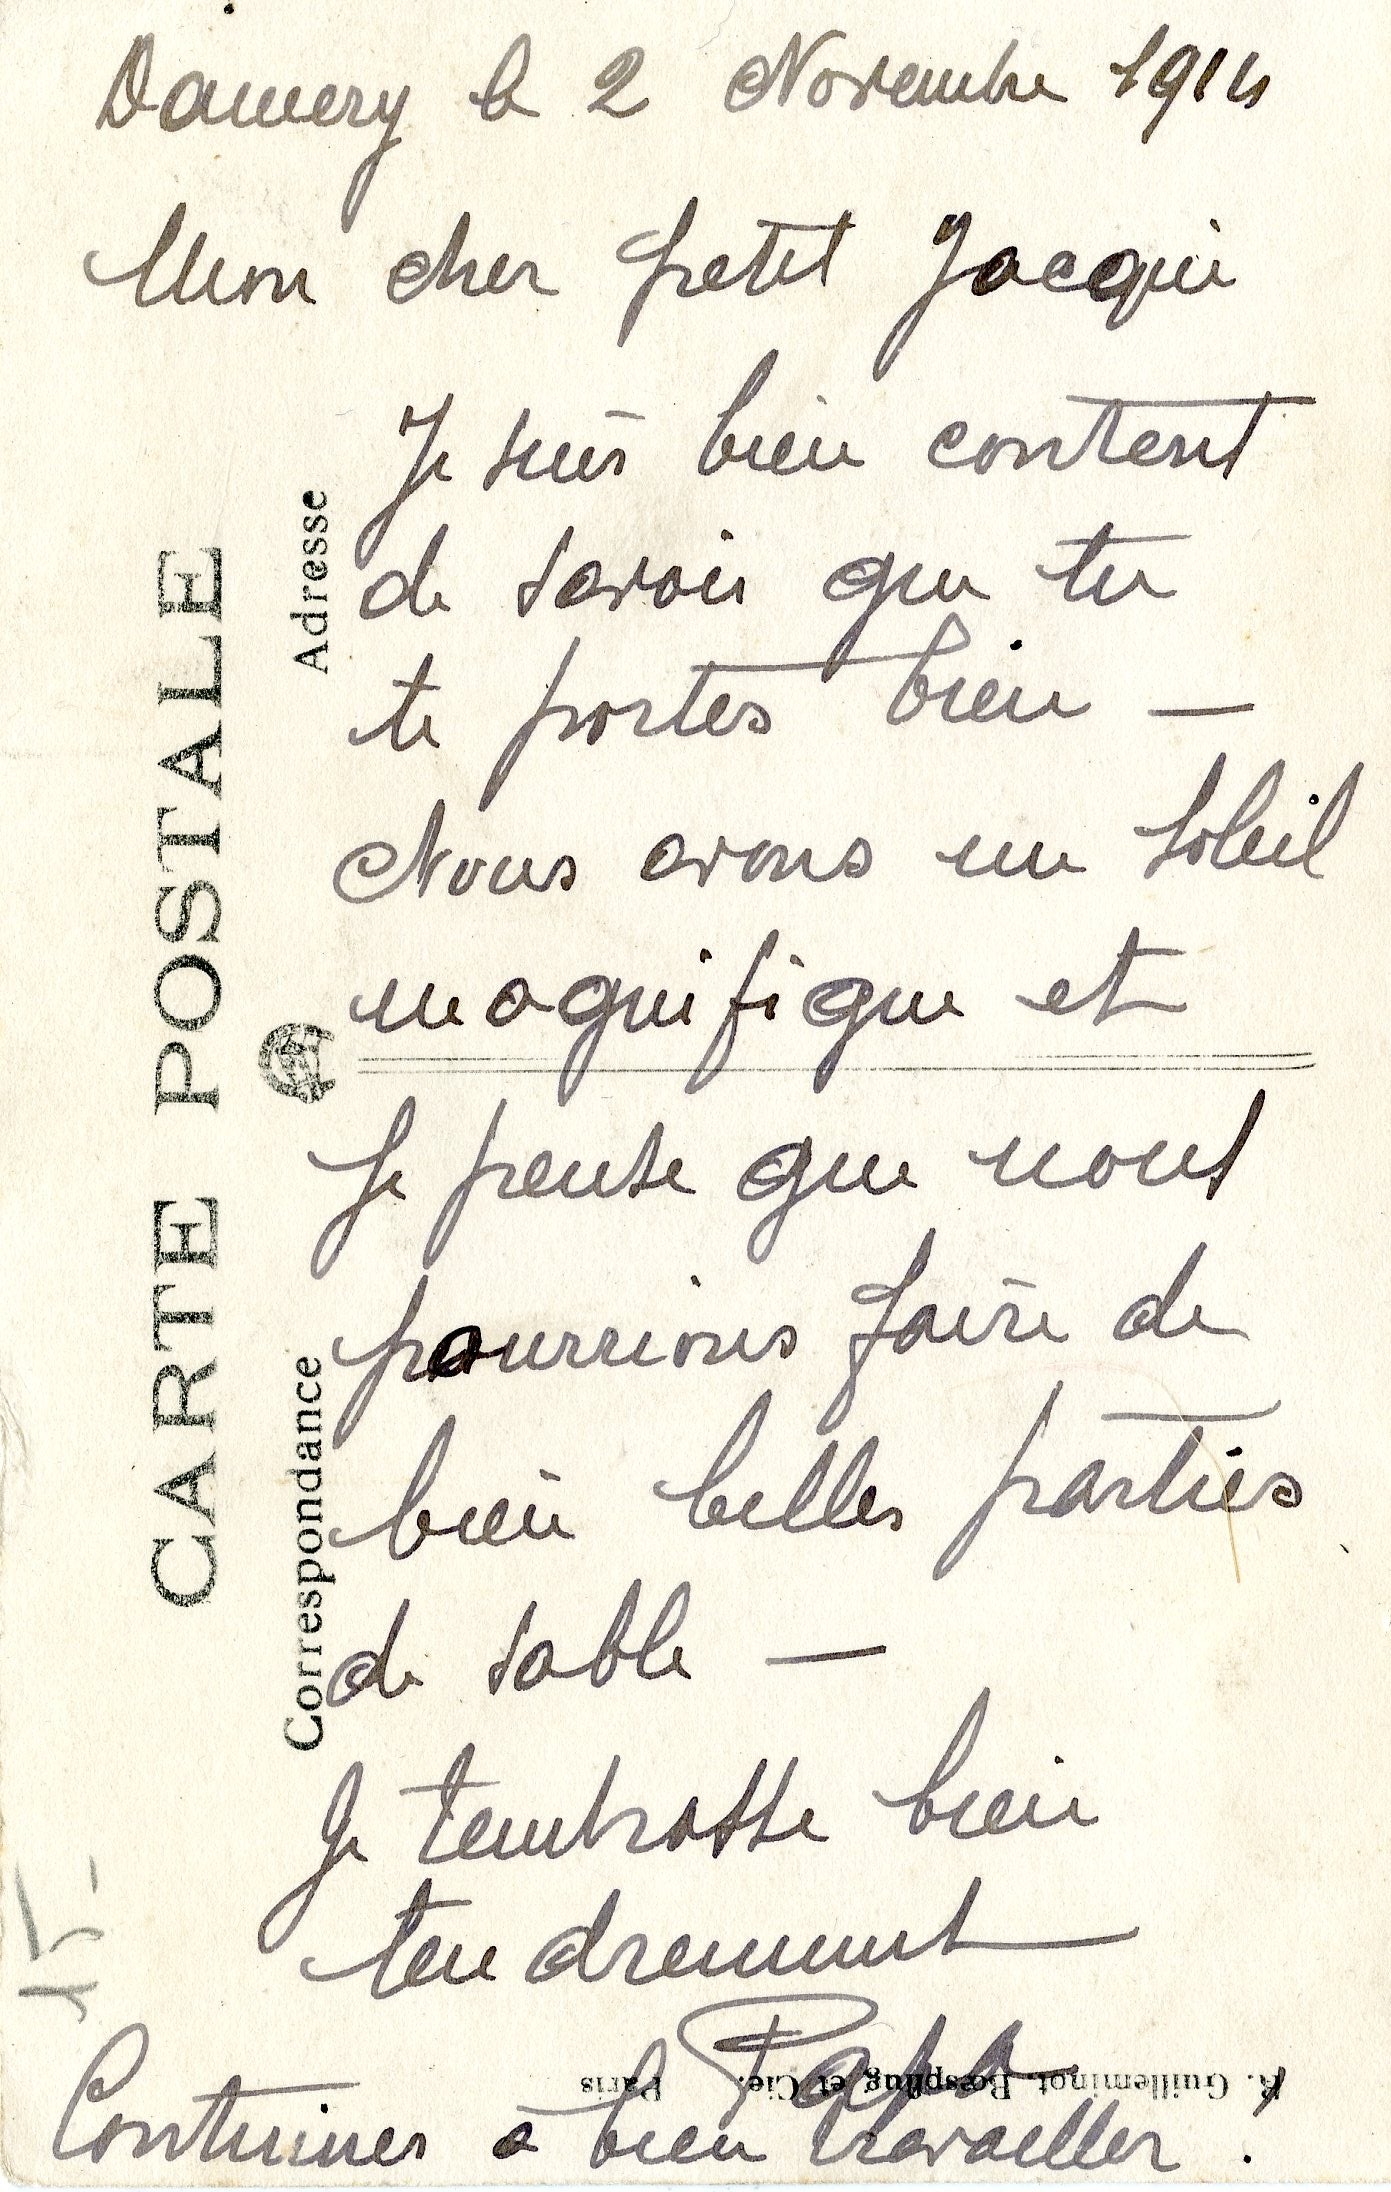 Damery le 2 Novembre 1914
Mon cher petit Jacqui
Je suis bien content
de savoir que tu
te portes bien —
Nous avons un soleil
magnifique et
Je pense que nous
pourrions faire de
bien belles parties
de sable —
Je t'embrasse bien
tendrement
Papa
Continues à bien travailler.
CARTE POSTALE
Correspondance
Adresse
R. Guilleminot, Bœspflug et Cie. Paris
15-